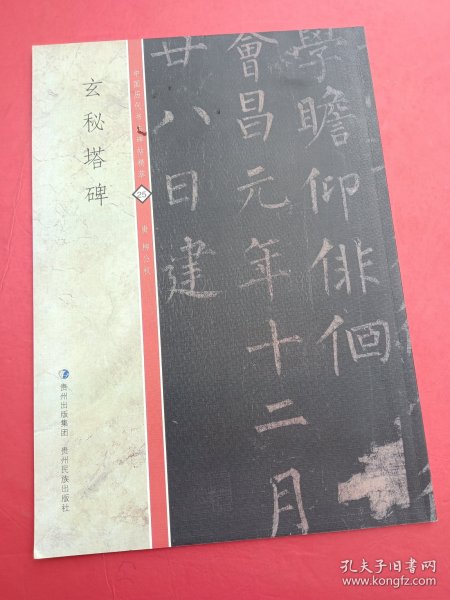 玄秘塔碑
贵州出版集团 贵州民族出版社
25
唐 柳公权
學瞻仰俳佪
會昌元年十二月
廿八日建
孔夫子旧书网
www.kongfz.com